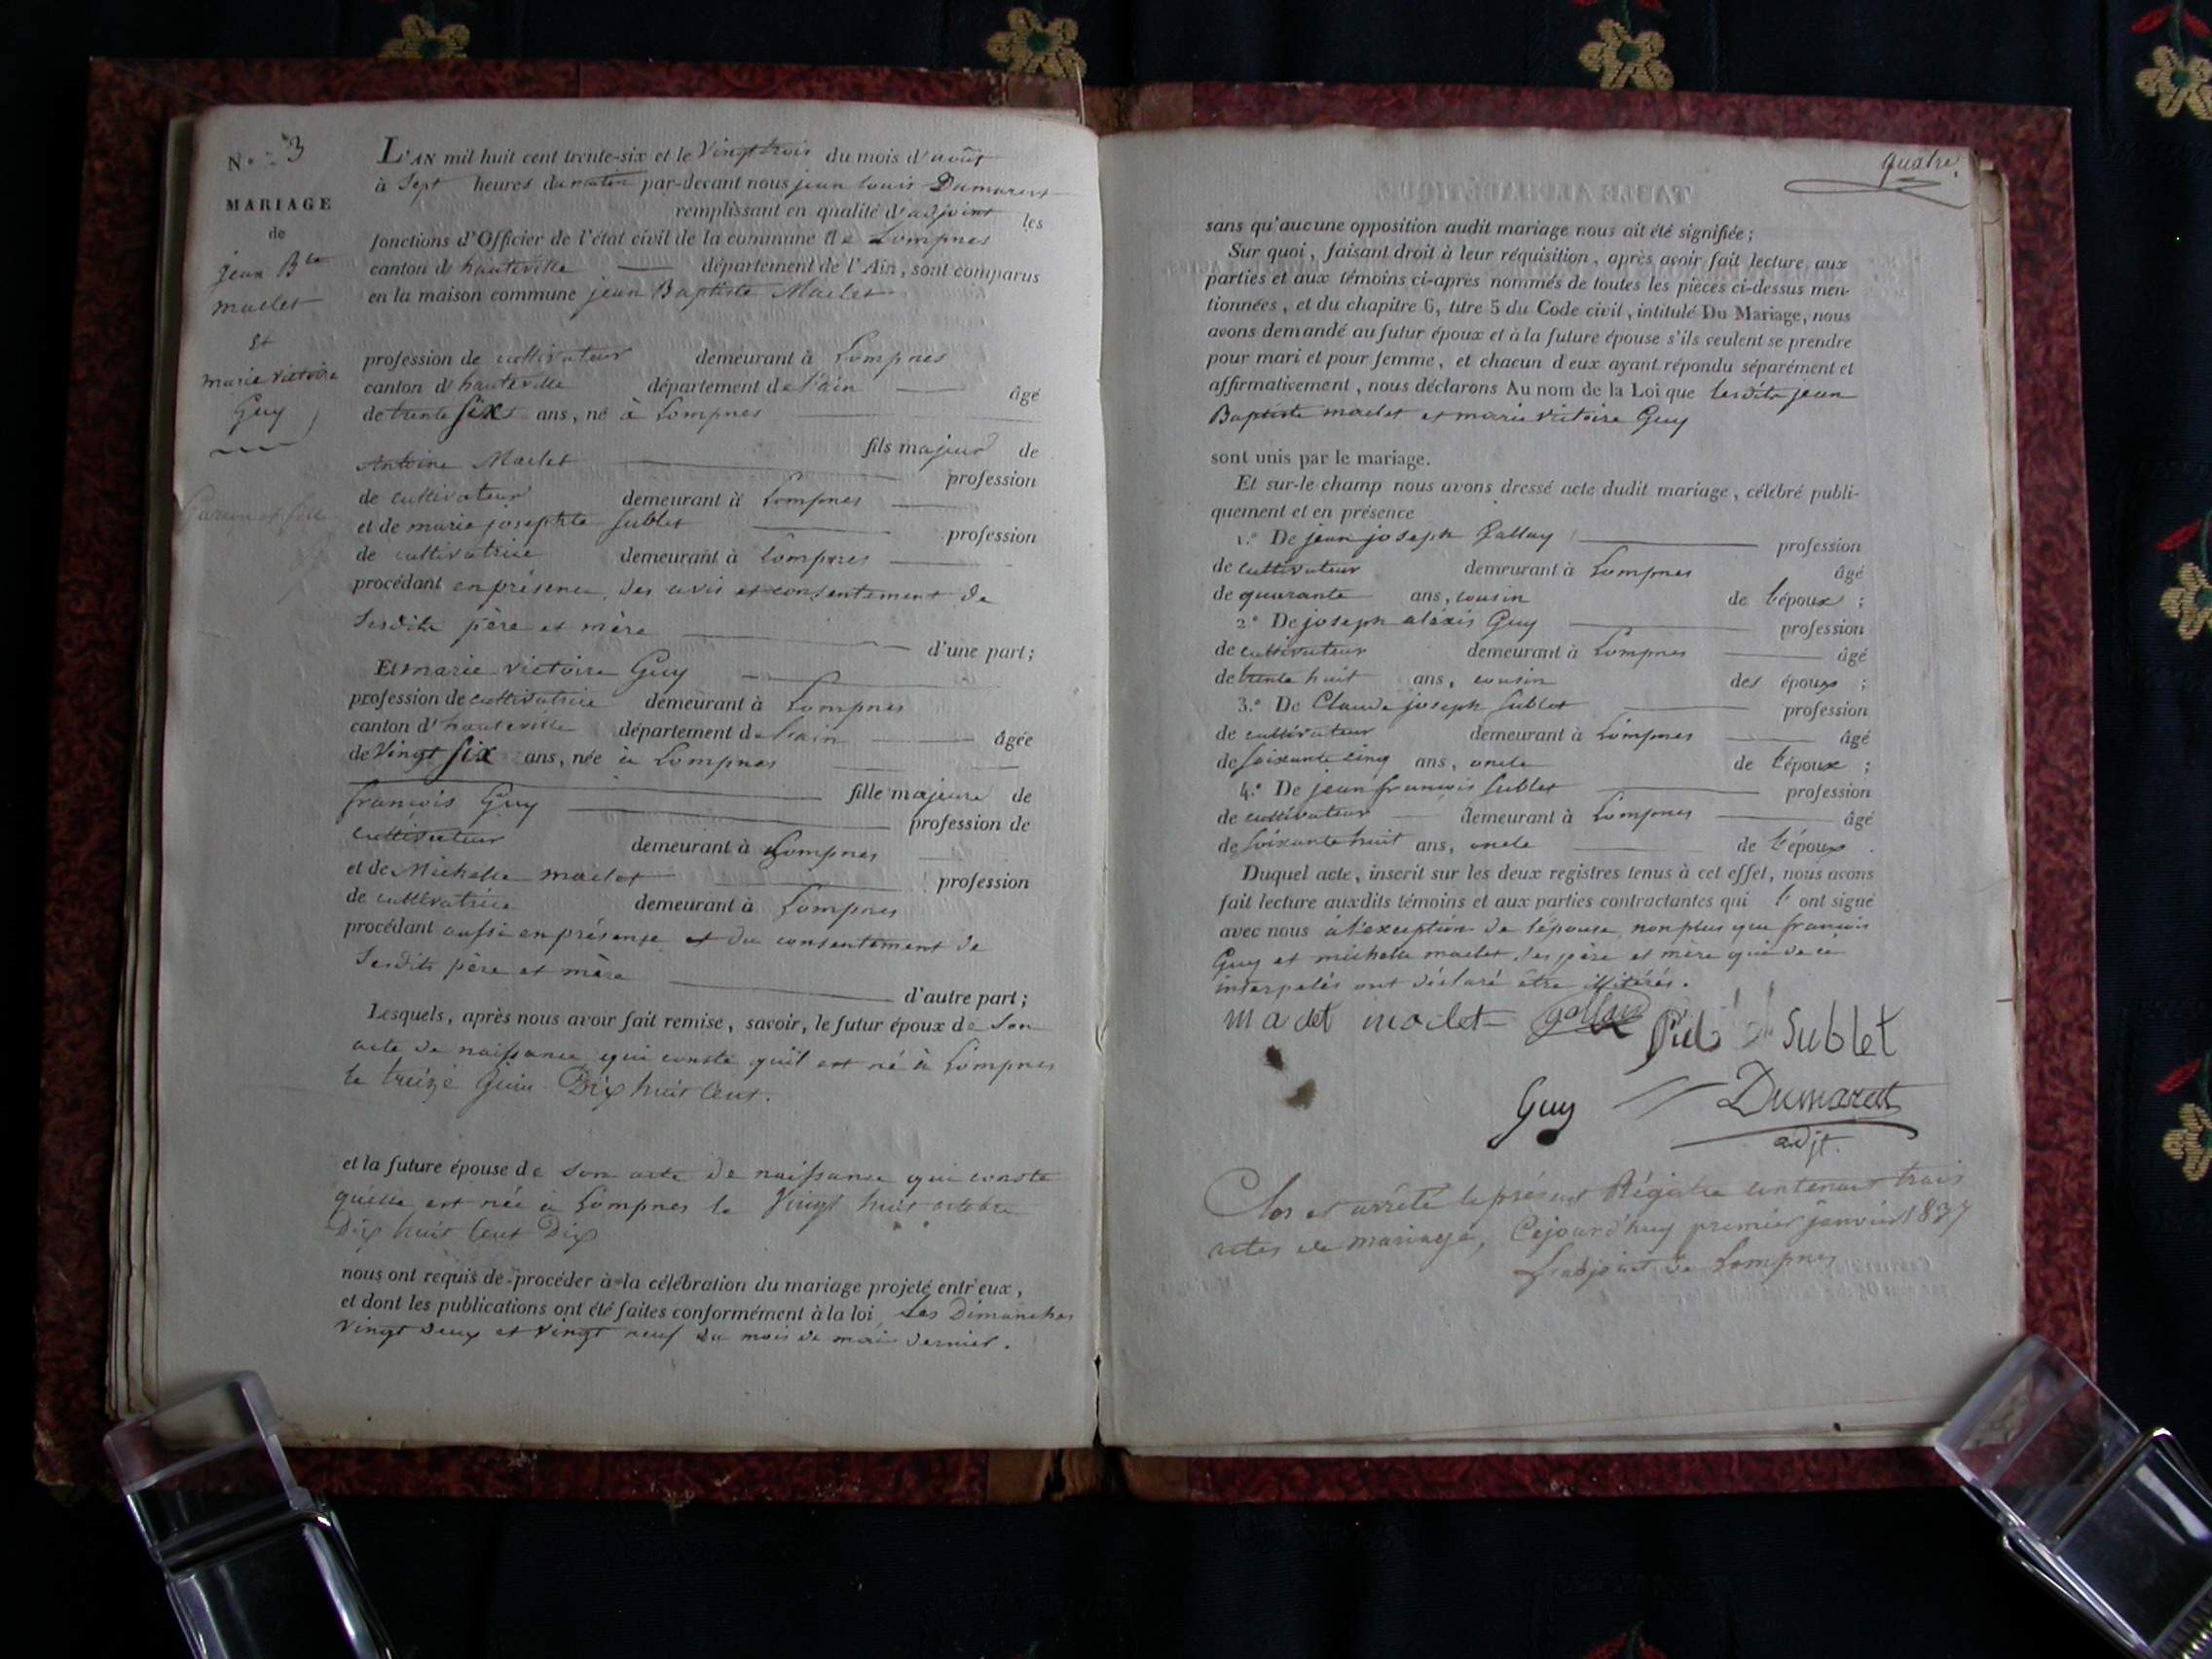 N.° 3
MARIAGE
de
jean B.te
maclet
Et
marie victoire
Guy
Garçon et fille
L'AN mil huit cent trente-six et le Vingt trois du mois d'août
à Sept heures du matin par-devant nous jean louis Dumarest
remplissant en qualité d'adjoint les
fonctions d'Officier de l'état civil de la commune de Lompnes
canton d'hauteville département de l'Ain, sont comparus
en la maison commune jean Baptiste Maclet
profession de cultivateur demeurant à Lompnes
canton d'hauteville département de l'ain âgé
de trente six ans, né à Lompnes
fils majeur de
Antoine Maclet profession
de cultivateur demeurant à Lompnes
et de marie josephte Sublet profession
de cultivatrice demeurant à Lompnes
procédant en présence, des avis et consentement de
Sesdits père et mère
d'une part;
Et marie victoire Guy
profession de cultivatrice demeurant à Lompnes
canton d'hauteville département de l'ain âgée
de Vingt six ans, née à Lompnes
fille majeure de
françois Guy profession de
cultivateur demeurant à Lompnes
et de Michelle maclet profession
de cultivatrice demeurant à Lompnes
procédant aussi en présense et du consentement de
Sesdits père et mère
d'autre part;
Lesquels, après nous avoir fait remise, savoir, le futur époux de Son
acte de naissance qui conste qu'il est né à Lompnes
le treize Juin Dix huit Cent.
et la future épouse de son acte de naissance qui conste
qu'elle est née à Lompnes le Vingt huit octobre
Dix huit Cent Dix
nous ont requis de procéder à la célébration du mariage projeté entr'eux,
et dont les publications ont été faites conformément à la loi Les Dimanches
vingt deux et vingt neuf du mois de mai dernier.
quatre.
sans qu'aucune opposition audit mariage nous ait été signifiée;
Sur quoi, faisant droit à leur réquisition, après avoir fait lecture aux
parties et aux témoins ci-après nommés de toutes les pièces ci-dessus men-
tionnées, et du chapitre 6, titre 5 du Code civil, intitulé Du Mariage, nous
avons demandé au futur époux et à la future épouse s'ils veulent se prendre
pour mari et pour femme, et chacun d'eux ayant répondu séparément et
affirmativement, nous déclarons Au nom de la Loi que lesdits jean
Baptiste maclet et marie victoire Guy
sont unis par le mariage.
Et sur-le-champ nous avons dressé acte dudit mariage, célébré publi-
quement et en présence
1.° De jean joseph Gallay profession
de cultivateur demeurant à Lompnes âgé
de quarante ans, cousin de l'époux;
2.° De joseph aléxis Guy profession
de cultivateur demeurant à Lompnes âgé
de trente huit ans, cousin des époux;
3.° De Claude joseph Sublet profession
de cultivateur demeurant à Lompnes âgé
de soixante cinq ans, oncle de l'époux;
4.° De jean françois Sublet profession
de cultivateur demeurant à Lompnes âgé
de soixante huit ans, oncle de l'époux.
Duquel acte, inscrit sur les deux registres tenus à cet effet, nous avons
fait lecture auxdits témoins et aux parties contractantes qui l' ont signé
avec nous à l'exception de l'épouse, non plus que françois
Guy et michelle maclet, ses père et mère qui de ce
interpelés ont déclaré être illitérés.
maclet maclet Gallay Sublet
Guy Dumarest
adjt.
Clos et arrêté le présent Régistre contenant trois
actes de mariage, Cejourd'huy premier janvier 1837
L'adjoint de Lompnes